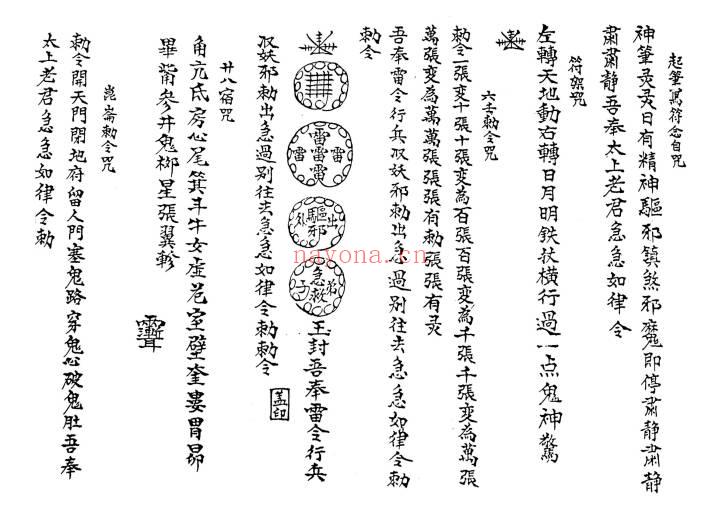 起筆馬符念自咒
神筆灵灵日有精神驅邪鎮煞邪魔即停肅静肅静
肅肅静吾奉太上老君急急如律令
符架咒
左轉天地動右轉日月明鉄仗横行過一点鬼神驚
六壬勅令咒
勅令一張变十張十張变為百張百張变為千張千張变為萬張
萬張变為萬萬張張有勅張張有灵
吾奉雷令行兵収妖邪勅出急過别往去急急如律令勅
勅令
雷雷雷雷雷
出驅邪外
急救弟子
玉封吾奉雷令行兵
収妖邪勅出急過别往去急急如律令勅勅令
盖印
廿八宿咒
角亢氐房心尾箕斗牛女虚危室壁奎婁胃昴
畢觜参井鬼柳星張翼軫
崑崙勅令咒
勅令開天門閉地府留人門塞鬼路穿鬼心破鬼肚吾奉
太上老君急急如律令勅
nayona.cn